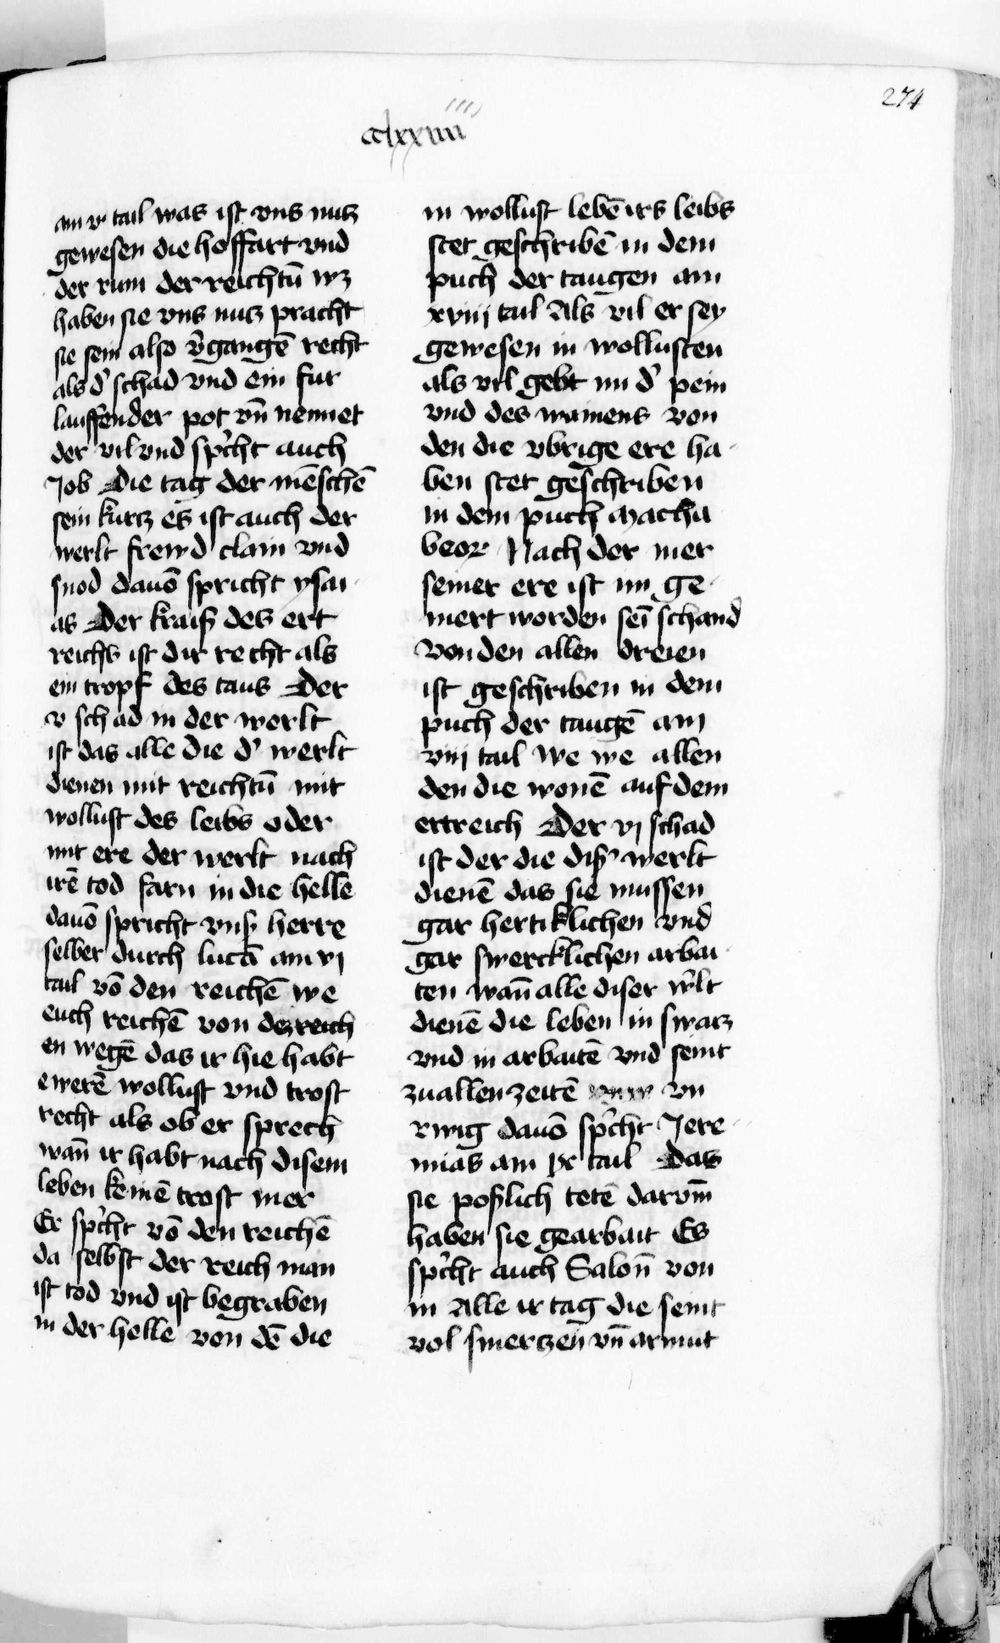 274
cclxxiiii
am v tail was ist vns nucz
gewesen die hoffart vnd
der rum der reichtū wz
haben sie vns nucz pracht
sie sein also v̄gangē recht
als d' schad vnd ein fur
lauffender pot vn̄ nennet
der vil vnd spricht auch
Job Die tag der mēschē
sein kurcz es ist auch der
werlt frewd clain vnd
snod dauō spricht ysai
as Der kraiß des ert
reichs ist dir recht als
ein tropf des taus Der
v schad in der werlt
ist das alle die d' werlt
dienen mit reichtū mit
wollust des leibs oder
mit ere der werlt nach
irē tod farn in die helle
dauō spricht vnß herre
selber durch lucā am vj
tail vō den reichē we
euch reichē von dez reich
en wegē das ir hie habt
ewerē wollust vnd trost
recht als ob er sprech
wan̄ ir habt nach disem
leben keinē trost mer
Er spricht vō den reichē
da selbst der reich man
ist tod vnd ist begraben
in der helle von dē die
in wollust lebē irs leibs
stet geschribē in dem
puch der taugen am
xviij tail Als vil er sey
gewesen in wollusten
als vil gebt im d' pein
vnd des wainens von
den die vbrige ere ha
ben stet geschriben
in dem puch Macha
beor Nach der mer
seiner ere ist im ge
mert worden sei schand
Von den allen dreien
ist geschriben in dem
puch der taugē am
viij tail We we allen
den die wonē auf dem
ertreich Der vj schad
ist der die diß werlt
dienē das sie mussen
gar hertiklichen vnd
gar swercklichen arbai
ten wan̄ alle diser w'lt
dienē die leben in swarz
vnd in arbaitē vnd seint
zu allen zeitē vn
rwig dauō spricht Jere
mias am ix tail Das
sie poßlich tetē darvm̄
haben sie gearbait Es
spricht auch Salon̄ von
in Alle ir tag die seint
vol smerczen vn̄ armut